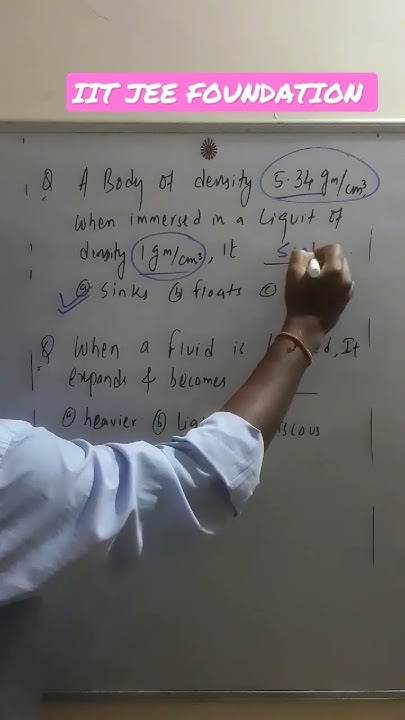 IIT JEE FOUNDATION
Q A Body of density 5.34 gm/cm³
when immersed in a Liquit of
density 1 gm/cm³, It
ⓐ Sinks ⓑ floats ⓒ
Q When a fluid is , It
expands & becomes
ⓐ heavier ⓑ